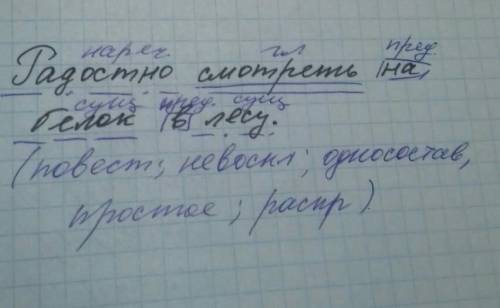 нареч гл пред
Радостно смотреть на
сущ пред сущ
белок в лесу.
(повест; невоскл; односостав,
простое; распр)